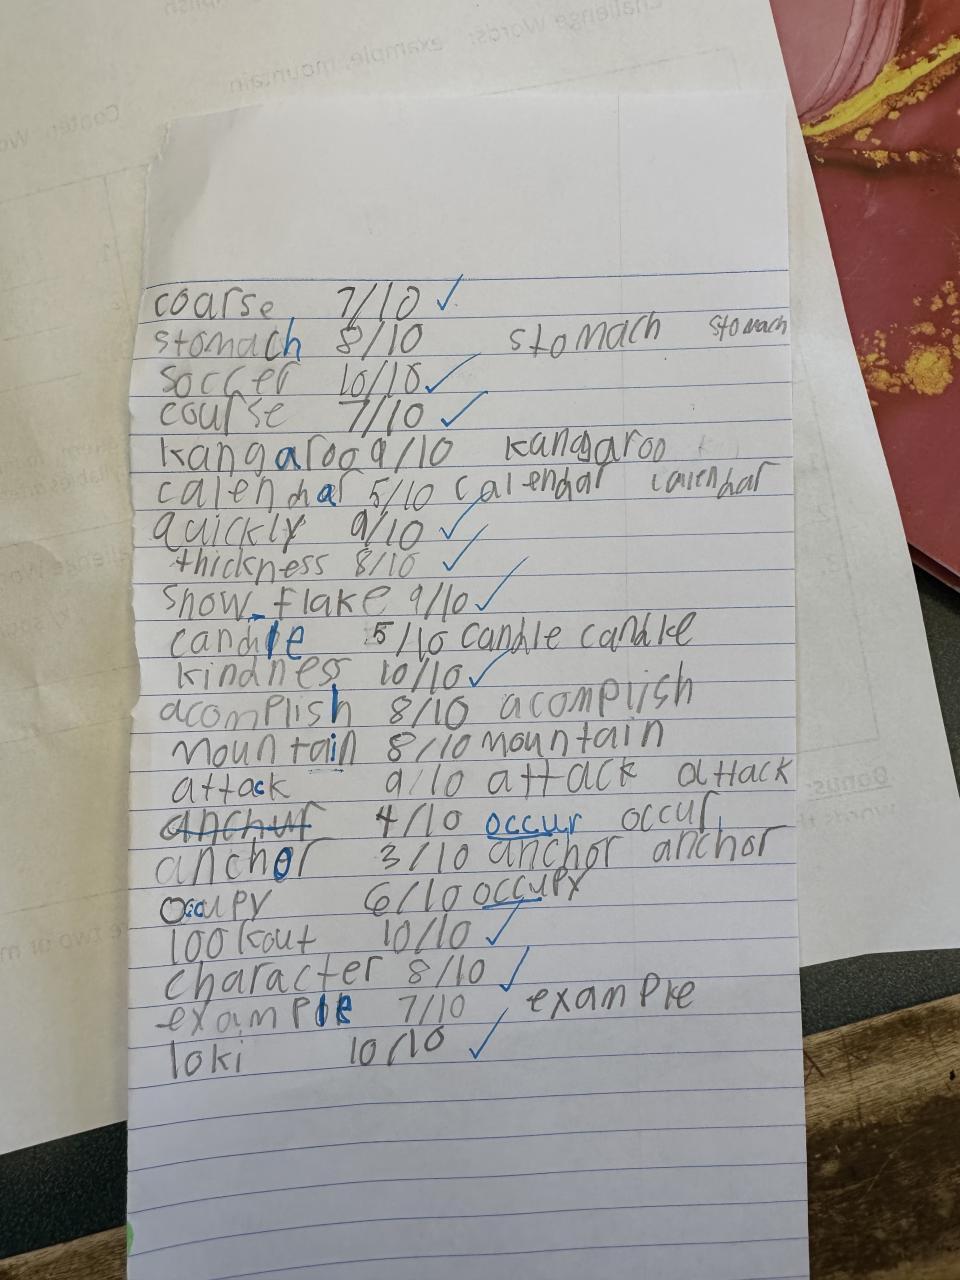 Challenge Words: example, mountain,
coarse 7/10 ✓
stomach 8/10 stomach stomach
soccer 10/10 ✓
course 7/10 ✓
kangaroo 9/10 kangaroo
calendar 5/10 calendar calendar
quickly 9/10 ✓
thickness 8/10 ✓
snow_flake 9/10 ✓
candle 5/10 candle candle
kindness 10/10 ✓
acomplish 8/10 acomplish
mountain 8/10 mountain
attack 9/10 attack attack
anchur 4/10 occur occur
anchor 3/10 anchor anchor
occupy 6/10 occupy
lookout 10/10 ✓
character 8/10 ✓
example 7/10 example
loki 10/10 ✓
Bonus: